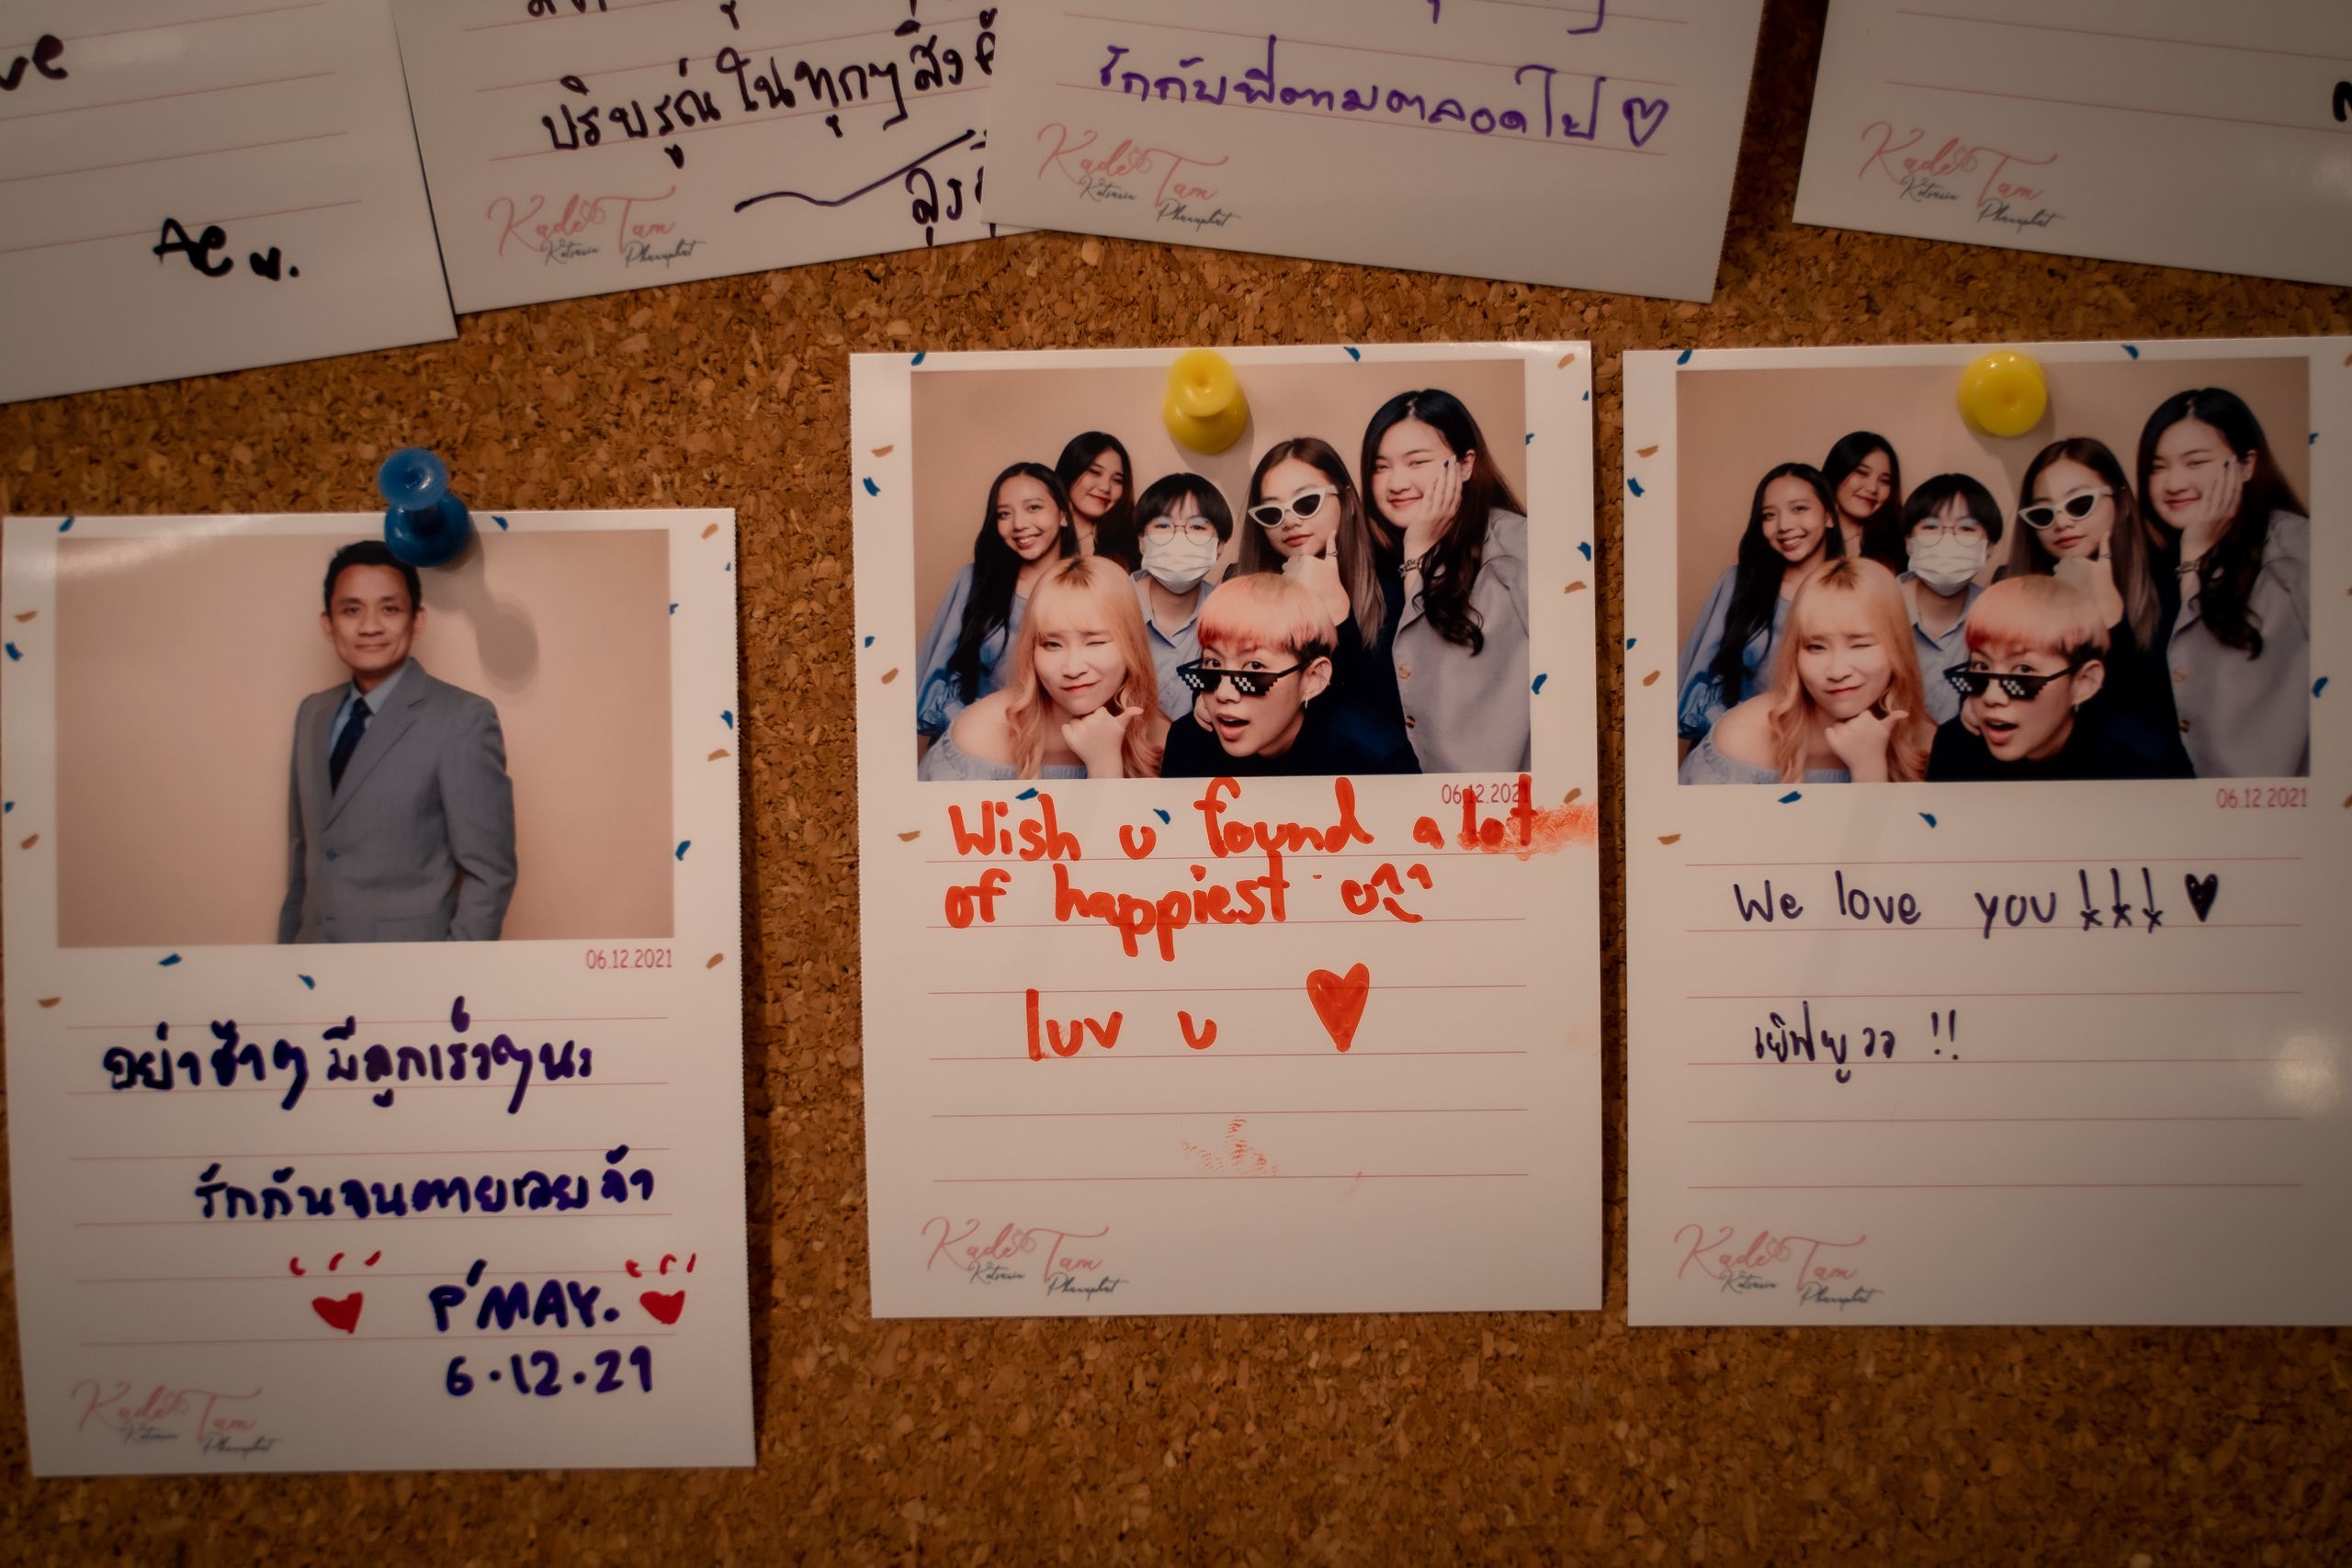 Ae
ปริบรูณ์ ในทุกๆ สิ่ง
Kade Tam
รักกับพี่ตามตลอดไป
Kade Tam
Kade Tam
06.12.2021
อย่าช้าๆ มีลูกเร็วๆนะ
รักกันจนตายเลยจ้า
P'MAY.
6.12.21
Kade Tam
06.12.2021
Wish u found a lot
of happiest
luv u
Kade Tam
06.12.2021
We love you !!!
เยิฟยูวว !!
Kade Tam